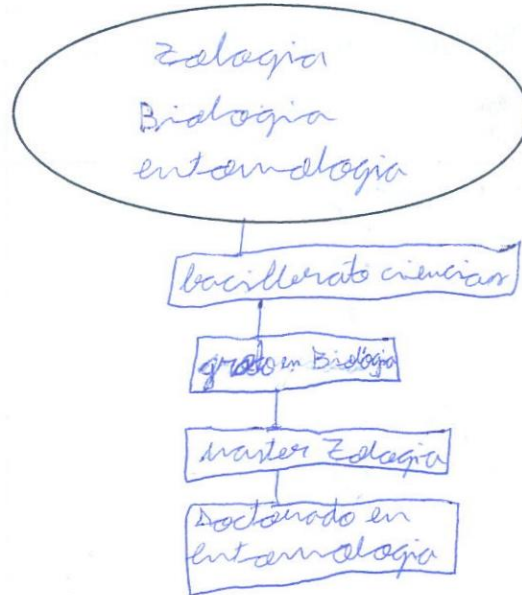 Zologia
Biologia
entomologia
bacillerato ciencias
grado en Biologia
master Zologia
Doctorado en
entomologia